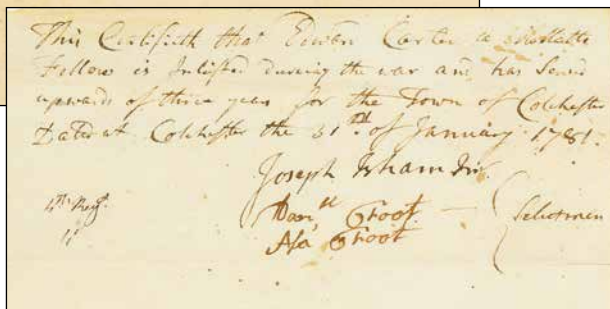 This Certifieth that Edwen Carter a Molatto
Fellow is Inlisted during the war and has Served
upwards of three years for the Town of Colchester
Dated at Colchester the 31st of January 1781.
Joseph Isham Jnr
Danll Foot
Asa Foot
Selectmen
4th Regt